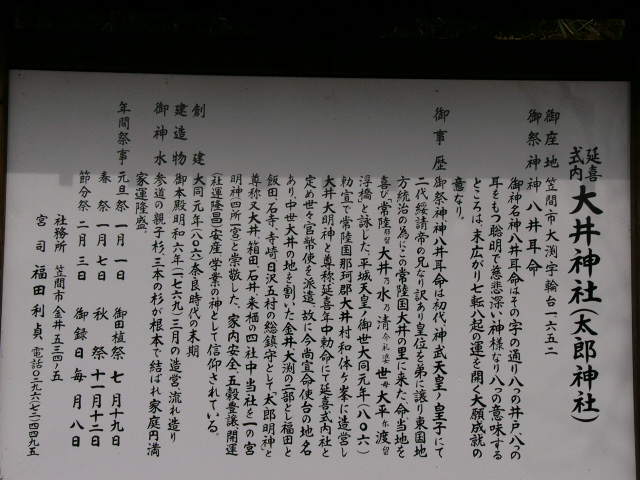 延喜式内 大井神社(太郎神社)
御座地 笠間市大渕字輪台一六五二
御祭神 八井耳命
御神名神八井耳命はその字の通り八つの井戸、八つの
耳をもつ聡明で慈悲深い神様なり八つの意味する
ところは、末広がり七転八起の運を開く大願成就の
意なり。
御事歴 御祭神神八井耳命は初代、神武天皇ノ皇子にて
二代綏靖帝の兄なり訳あり皇位を弟に譲り東国地
方統治の為にこの常陸国大井の里に来た、命当地を
喜び常陸留大井乃水乃清世大平尓渡留
浮橋と詠した、平城天皇ノ御世大同元年(八〇六)
勅宣で常陸国那珂郡大井村和体ヶ峯に造営し
大井大明神と尊称延喜年中勅命にて延喜式内社と
定め世々官幣使を派遣、故に今尚宣命使台の地名
あり中世大井の地を割いた金井、大渕の二部と福田と
飯田、石寺、寺崎、日沢五村の総鎮守として太郎明神と
尊称又大井、箱田、石井、来栖の四社中当社を一の宮
明神四所一宮と崇敬した。家内安全、五穀豊譲開運
(社運隆昌)安産、学業の神として信仰されている。
創建 大同元年(八〇六)奈良時代の末期
建造物 御本殿明和六年(一七六九)三月の造営、流れ造り
御神水 参道の親子杉、三本の杉が根本で結ばれ家庭円満
家運隆盛。
年間祭事 元旦祭 一月一日 御田植祭 七月十九日
春祭 一月七日 秋祭 十一月十二日
節分祭 二月三日 御録日 毎月八日
社務所 笠間市金井五三四ノ五
宮司 福田利貞 電話〇二九六(七二)四四九五